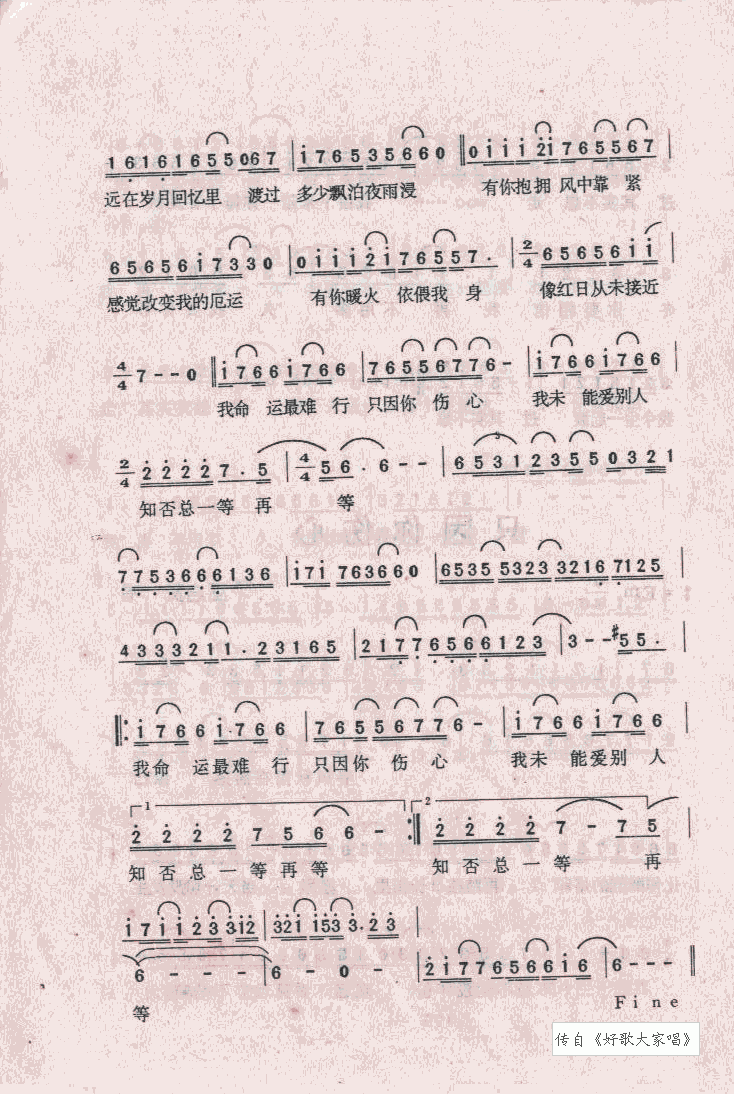 1 6 1 6 1 6 5 5 0 6 7 | i 7 6 5 3 5 6 6 0 ‖ 0 i i i 2 i 7 6 5 5 5 6 7 |
远在岁月回忆里 渡过 多少飘泊夜雨漫 有你抱拥 风中靠 紧
6 5 6 5 6 i 7 3 3 0 | 0 i i i 2 i 7 6 5 5 7 . | 2/4 6 5 6 5 6 i i |
感觉改变我的厄运 有你暖火 依偎我 身 像红日从未接近
4/4 7 - - 0 ‖ i 7 6 6 i 7 6 6 | 7 6 5 5 6 7 7 6 - | i 7 6 6 i 7 6 6 |
我命 运最难 行 只因你 伤 心 我未 能爱别人
2/4 2 2 2 2 7 . 5 | 4/4 5 6 . 6 - - | 6 5 3 1 2 3 5 5 0 3 2 1
知否总一等 再 等
7 7 5 3 6 6 6 1 3 6 | i 7 i 7 6 3 6 6 0 | 6 5 3 5 5 3 2 3 3 2 1 6 7 1 2 5 |
4 3 3 3 2 1 1 . 2 3 1 6 5 | 2 1 7 7 6 5 6 6 1 2 3 | 3 - - #5 5 . |
‖: i 7 6 6 i . 7 6 6 | 7 6 5 5 6 7 7 6 - | i 7 6 6 i 7 6 6 |
我命 运最难 行 只因你 伤 心 我未 能爱别 人
1 2
2 2 2 2 7 5 6 6 - :‖ 2 2 2 2 7 - 7 5 |
知 否 总 一 等 再 等 知 否 总 一 等 再
i 7 i i 2 3 3 i 2 | 3 2 i i 5 3 3 . 2 3 |
6 - - - 6 - 0 - | 2 i 7 7 6 5 6 6 i 6 | 6 - - - ‖
等
Fine
传自《好歌大家唱》